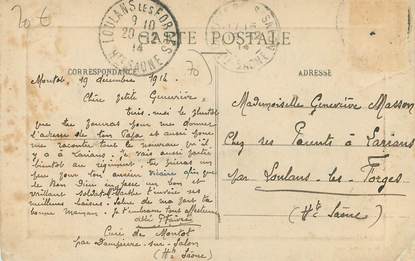 20 €
LOULANS LES FORGES
9 10
20 -12
14
Hte SAÔNE
CARTE POSTALE
70
CORRESPONDANCE
ADRESSE
Montot, 19 décembre 1914
Chère petite Geneviève,
Écris-moi le plus tôt
que tu pourras pour me donner
l'adresse de ton Papa et aussi pour
me raconter tout le nouveau qu'il
y a à Larians. Je vais aussi partir
bientôt au régiment. Tu prieras un
peu pour ton ancien vicaire afin que
le Bon Dieu en fasse un bon et
vaillant soldat. Marthe t'envoie ses
meilleurs baisers. Salue de ma part ta
bonne Maman. Je t'embrasse
abbé Favre
Curé de Montot
par Dampierre-sur-Salon
(Hte Saône)
Mademoiselle Geneviève Masson
Chez ses Parents à Larians
par Loulans-les-Forges
(Hte Saône)